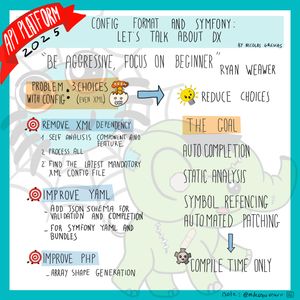 API PLATFORM
2025
CONFIG FORMAT AND SYMFONY:
LET'S TALK ABOUT DX
BY NICOLAS GREKAS
"BE AGGRESSIVE, FOCUS ON BEGINNER"
RYAN WEAVER
PROBLEM : 3 CHOICES
WITH CONFIG (EVEN XML)
REDUCE CHOICES
REMOVE XML DEPENDENCY
1 SELF ANALYSIS COMPONENT AND
FEATURE
2 PROCESS ALL
2 FIND THE LATEST MANDATORY
XML CONFIG FILE
IMPROVE YAML
- ADD JSON SCHEMA FOR
VALIDATION AND COMPLETION
- FOR SYMFONY YAML AND
BUNDLES
IMPROVE PHP
- ARRAY SHAPE GENERATION
THE GOAL
AUTO COMPLETION
STATIC ANALYSIS
SYMBOL REFENCING
AUTOMATED PATCHING
COMPILE TIME ONLY